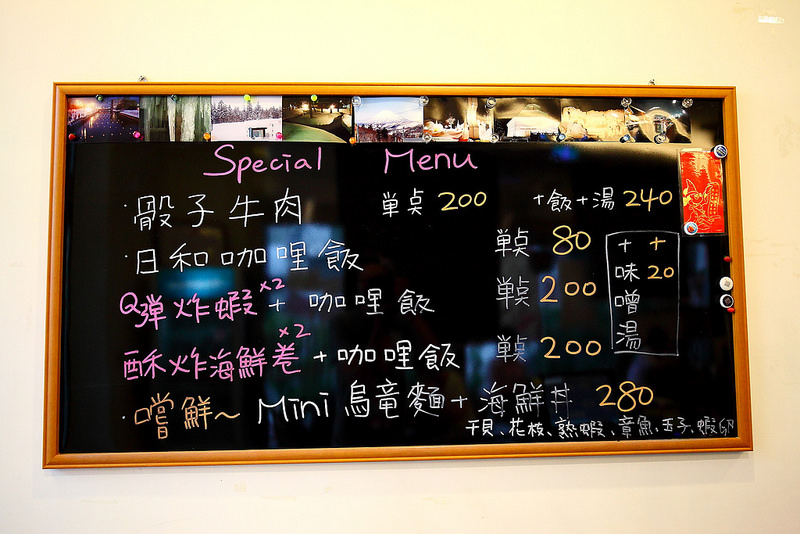 Special Menu
·骰子牛肉 単桌 200 +飯+湯 240
·日和咖哩飯 単桌 80
Q弾炸蝦x2+ 咖哩飯 単桌 200
酥炸海鮮卷x2+咖哩飯 単桌 200
++
味20
噌
湯
·嚐鮮~ Mini 烏竜麵+海鮮丼 280
干貝、花枝、熟蝦、章魚、玉子、蝦卵